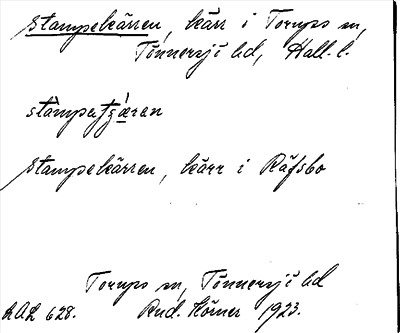 Stampekärren, kärr i Torups sn,
Tönnersjö hd, Hall. l.
Stampekärren, kärr i Räfsbo
Torups sn, Tönnersjö hd
LAL 628. Rud. Hörner 1923.